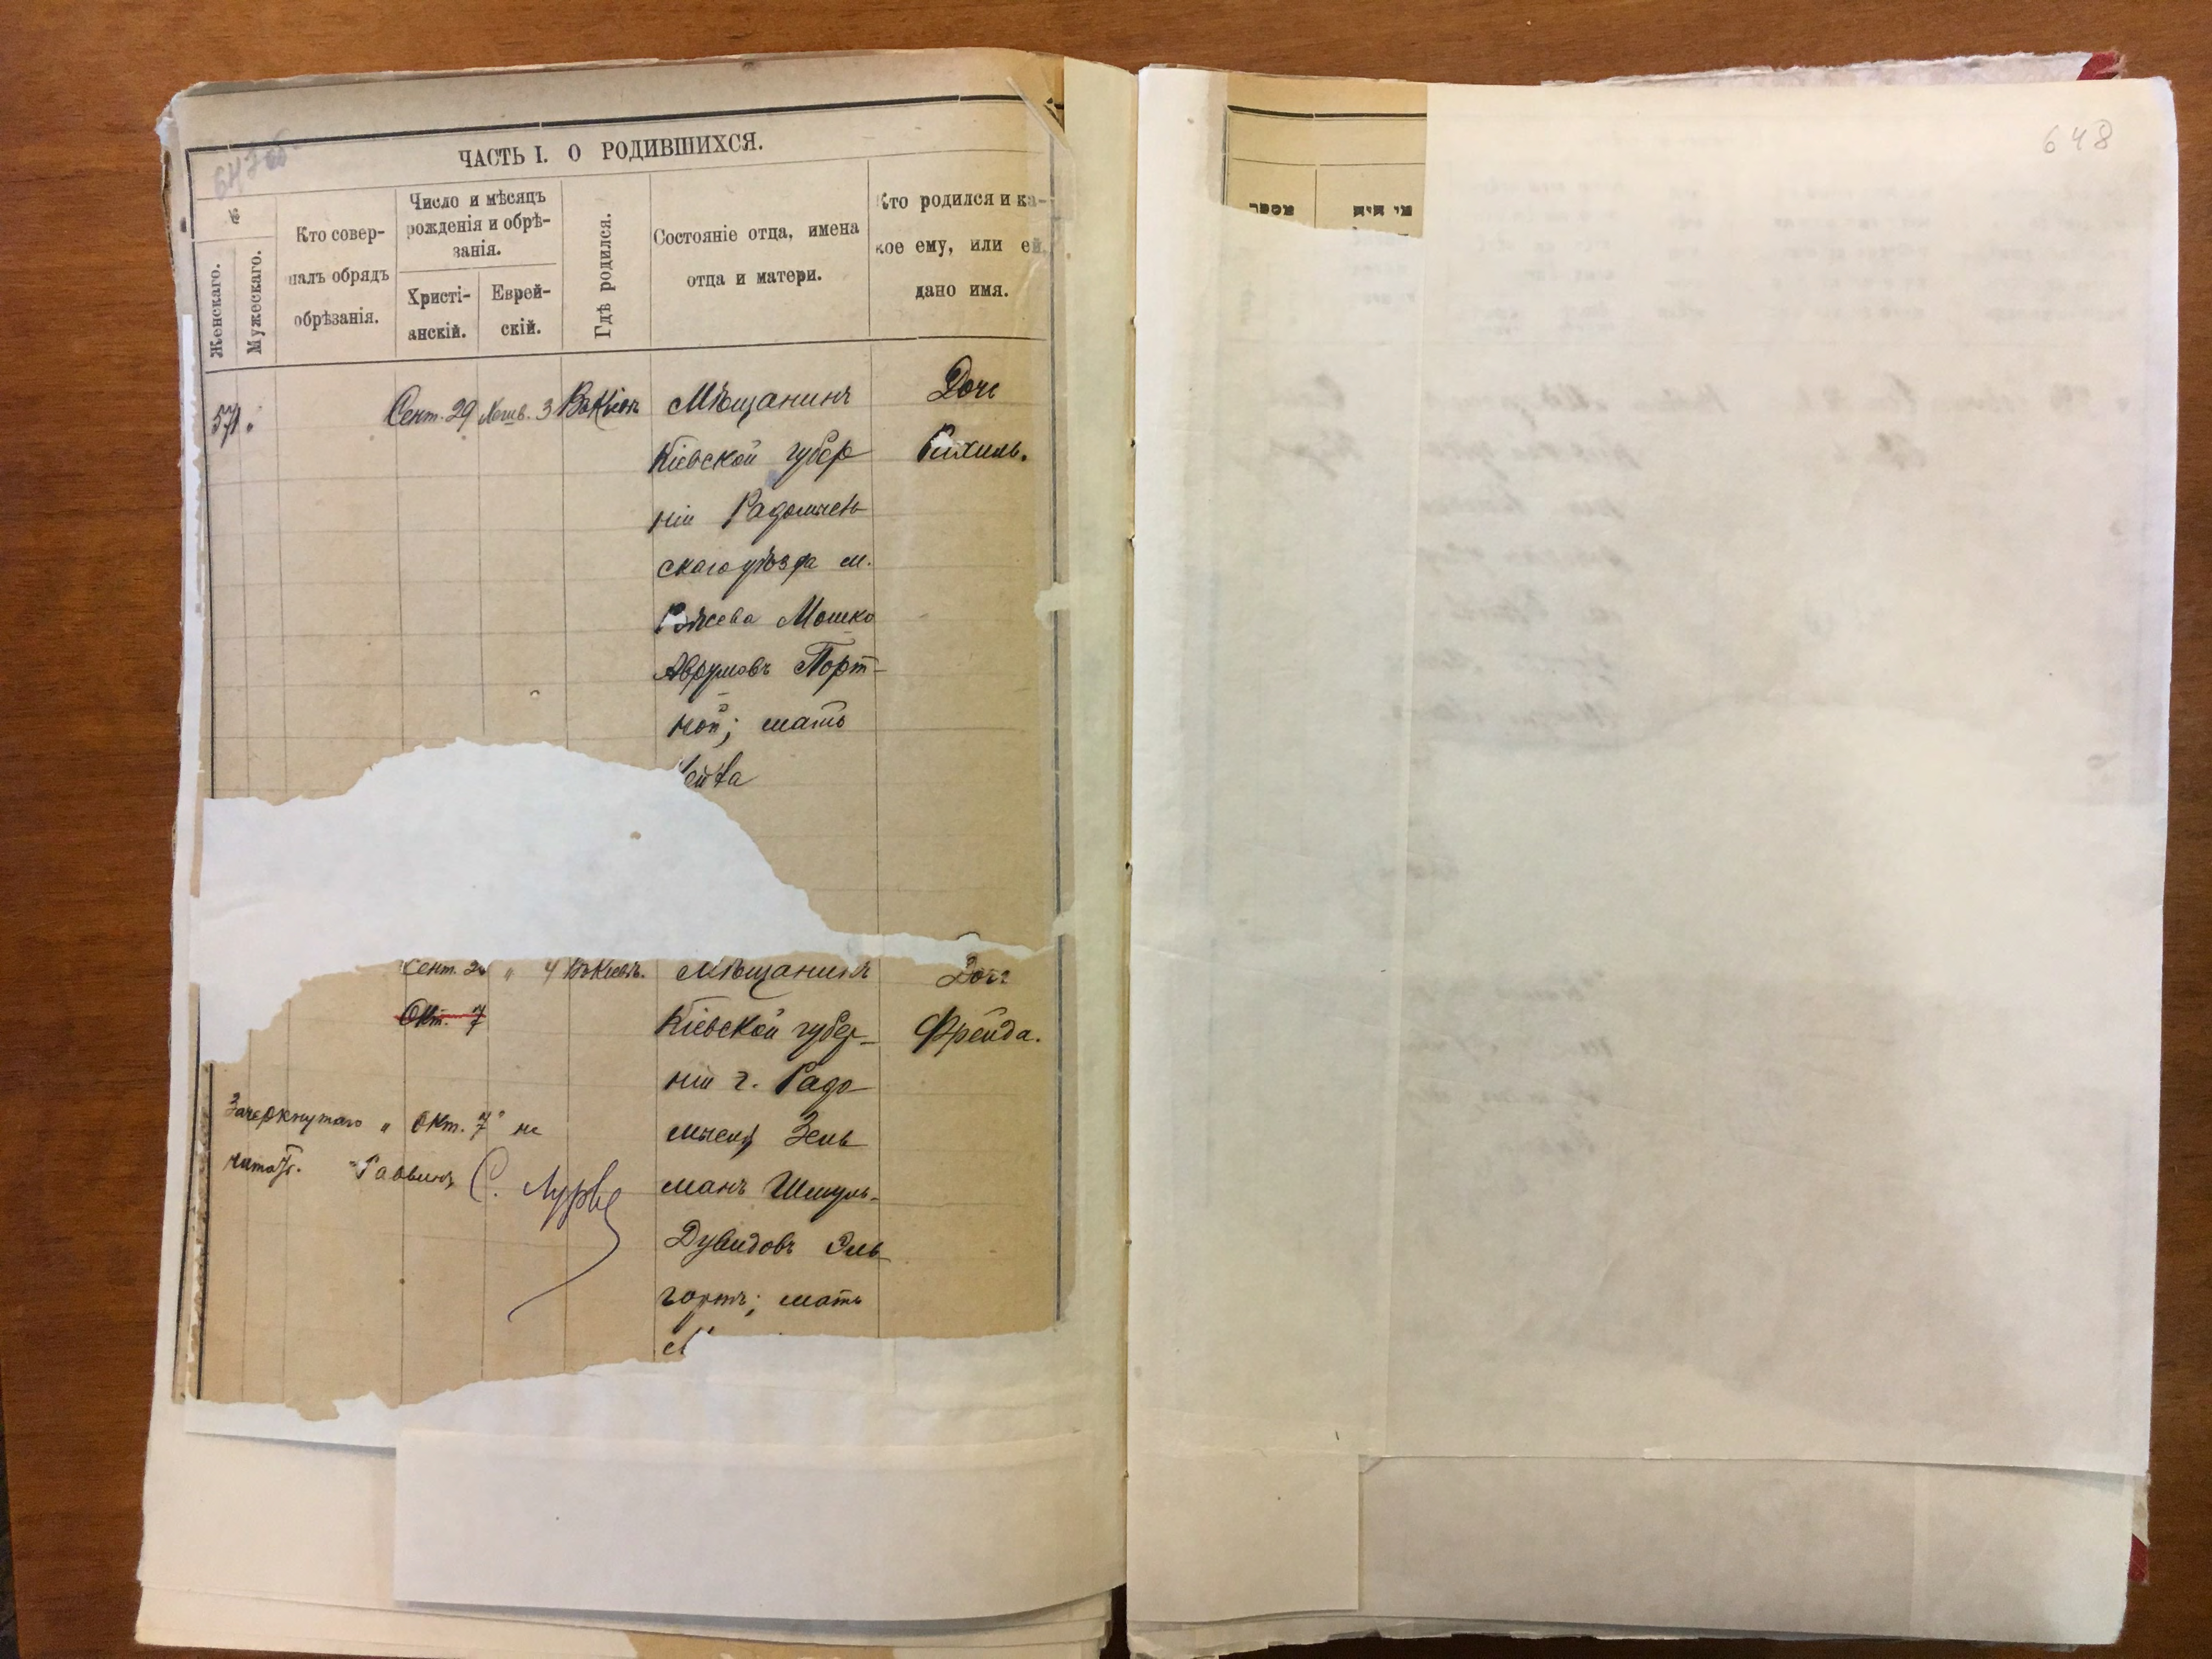 647 об
ЧАСТЬ I. О РОДИВШИХСЯ.
№
Женскаго.
Мужескаго.
Кто совер-
шалъ обрядъ
обрѣзанія.
Число и мѣсяцъ
рожденія и обрѣ-
занія.
Христі-
анскій.
Еврей-
скій.
Гдѣ родился.
Состояніе отца, имена
отца и матери.
Кто родился и ка-
кое ему, или ей
дано имя.
571. Сент. 29 Хешв. 3 Въ Кіевѣ
Мѣщанинъ
Кіевской губер
ніи Радомысль
скаго уѣзда м.
Мошко
Аврумовъ Порт-
ной; мать
Дочь
Рихиль.
Сент. " 4 Въ Кіевѣ.
Окт. 7
Мѣщанинъ
Кіевской губер-
ніи г. Радо
мысля Зель
манъ Шмуль-
Дувидовъ Эль
гортъ; мать
Дочь
Фрейда.
Зачеркнутаго „ Окт. 7" не
читать. Раввинъ С. Лурье
648